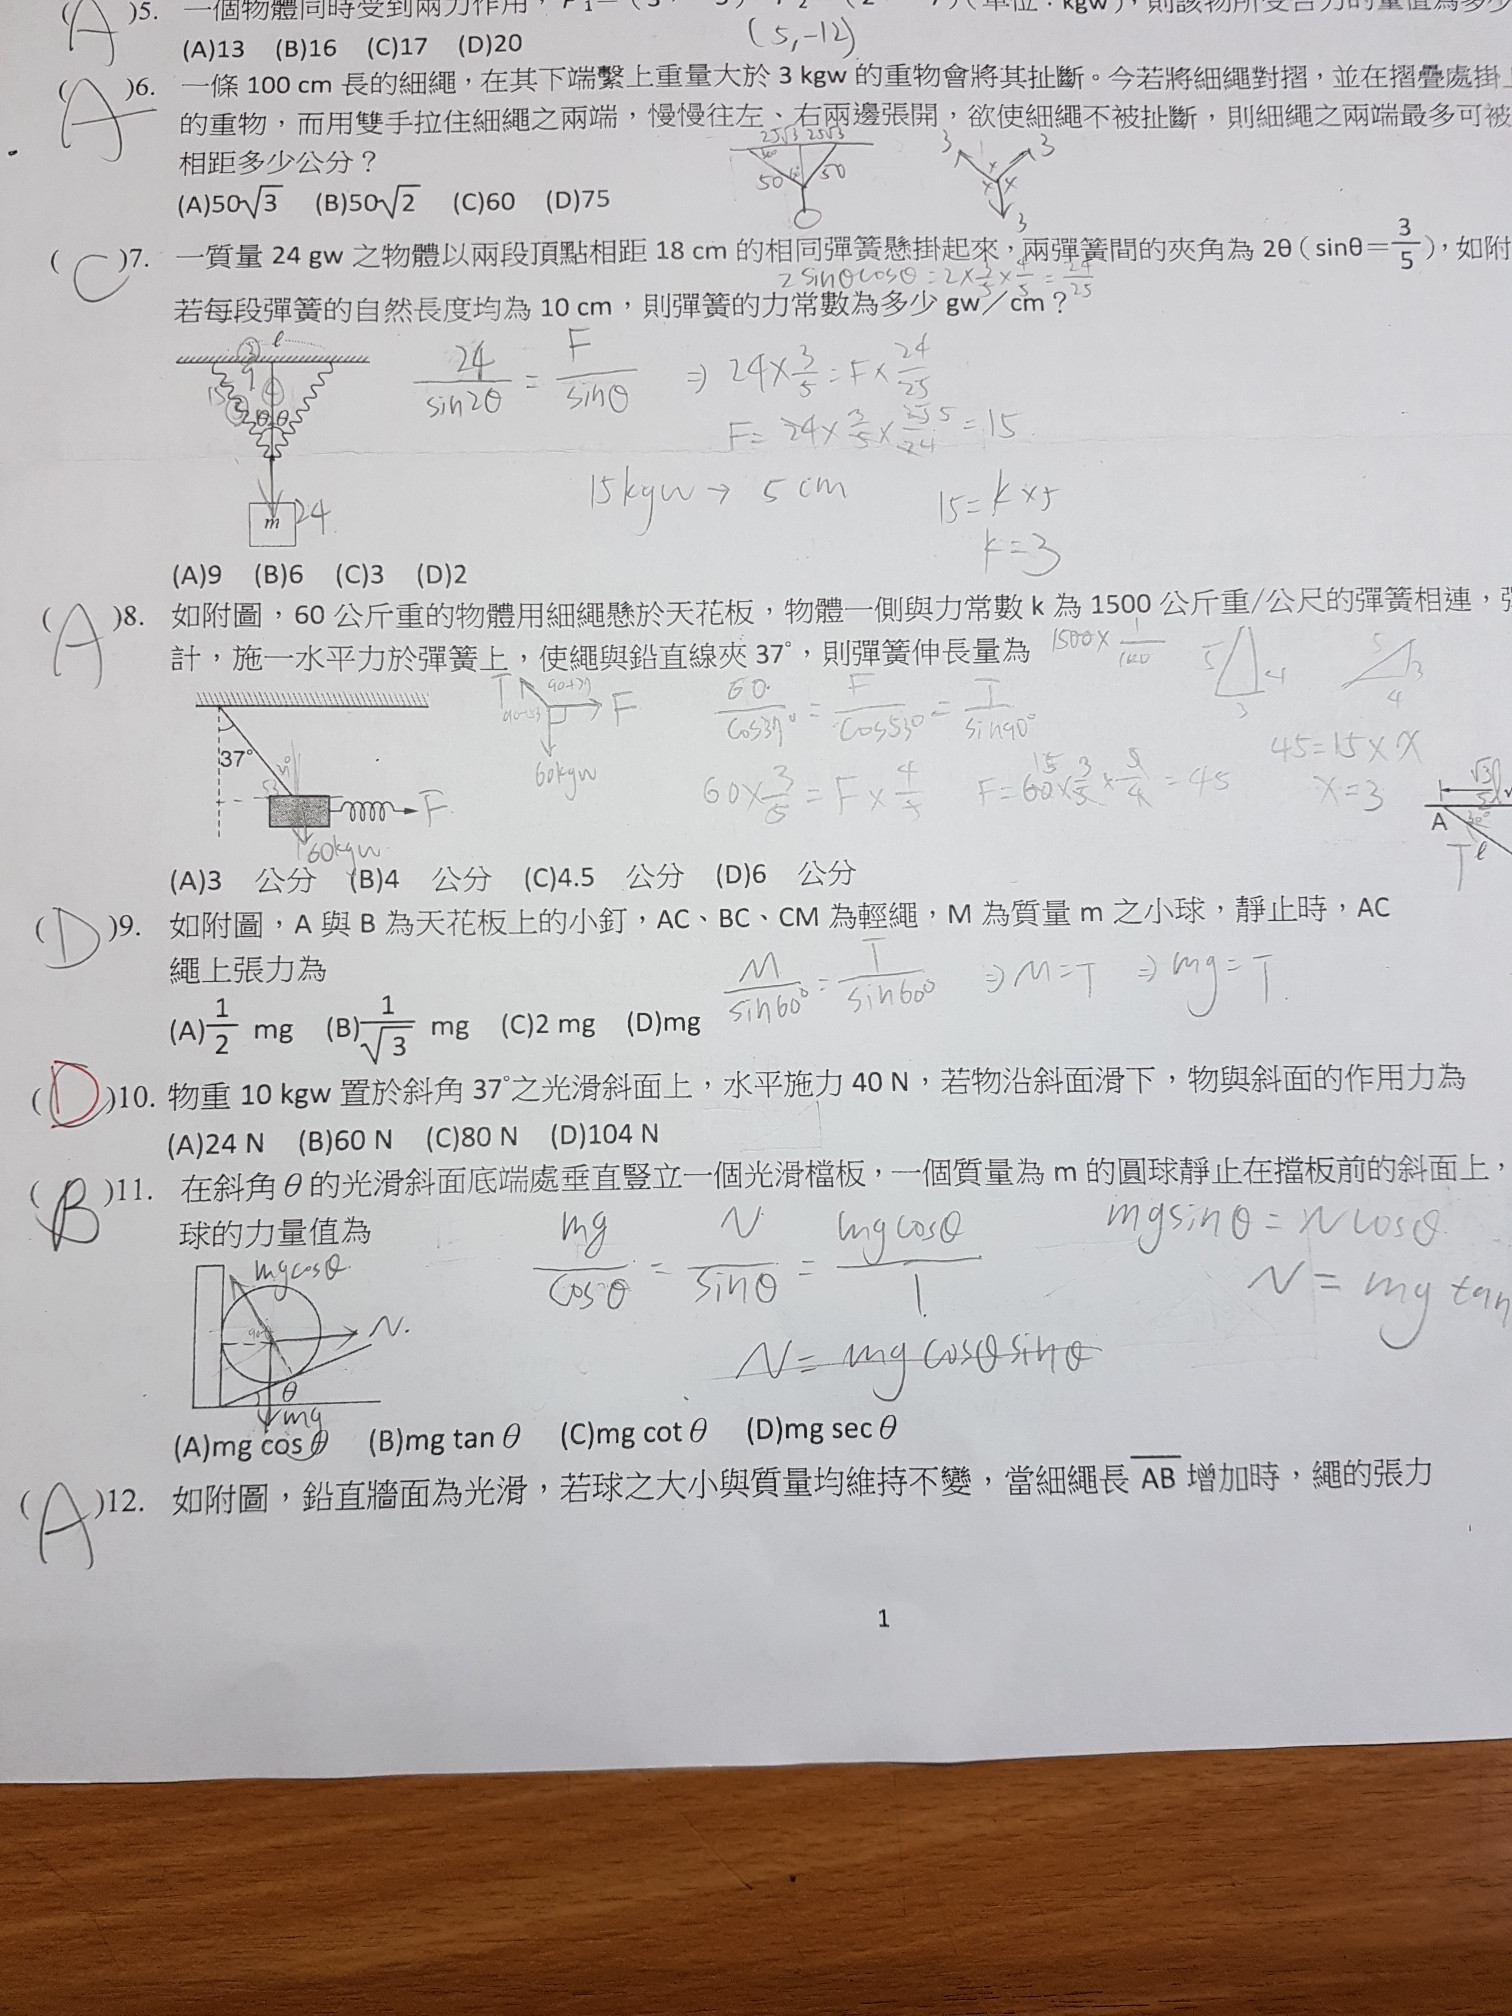 (A)5. 一個物體同時受到兩力作用，
(A)13 (B)16 (C)17 (D)20 (5,-12)
(A)6. 一條 100 cm 長的細繩，在其下端繫上重量大於 3 kgw 的重物會將其扯斷。今若將細繩對摺，並在摺疊處掛
的重物，而用雙手拉住細繩之兩端，慢慢往左、右兩邊張開，欲使細繩不被扯斷，則細繩之兩端最多可被
相距多少公分？
25√3 25√3
50 50
3 3
3
(A)50√3 (B)50√2 (C)60 (D)75
(C)7. 一質量 24 gw 之物體以兩段頂點相距 18 cm 的相同彈簧懸掛起來，兩彈簧間的夾角為 2θ（sinθ=3/5），如附
2sinθcosθ=2×3/5×4/5=24/25
若每段彈簧的自然長度均為 10 cm，則彈簧的力常數為多少 gw／cm？
24/sin2θ = F/sinθ ⇒ 24×3/5=F×24/25
F=24×3/5×25/24=15
15kgw→5cm 15=k×5
k=3
9 15 θ θ
m 24
(A)9 (B)6 (C)3 (D)2
(A)8. 如附圖，60 公斤重的物體用細繩懸於天花板，物體一側與力常數 k 為 1500 公斤重/公尺的彈簧相連，
計，施一水平力於彈簧上，使繩與鉛直線夾 37°，則彈簧伸長量為 1500×1/100
5 4 3 5 3 4
T 90+37 F
60kgw
60/cos37° = F/cos53° = T/sin90°
60×3/5=F×4/5 F=60×3/5×5/4=45
45=15×x
x=3
37° 53 F
60kgw
A 30° ℓ T
(A)3 公分 (B)4 公分 (C)4.5 公分 (D)6 公分
(D)9. 如附圖，A 與 B 為天花板上的小釘，AC、BC、CM 為輕繩，M 為質量 m 之小球，靜止時，AC
繩上張力為
M/sin60° = T/sin60° ⇒ M=T ⇒ mg=T
(A)1/2 mg (B)1/√3 mg (C)2 mg (D)mg
(D)10. 物重 10 kgw 置於斜角 37°之光滑斜面上，水平施力 40 N，若物沿斜面滑下，物與斜面的作用力為
(A)24 N (B)60 N (C)80 N (D)104 N
(B)11. 在斜角 θ 的光滑斜面底端處垂直豎立一個光滑檔板，一個質量為 m 的圓球靜止在擋板前的斜面上，
球的力量值為
mg/cosθ = N/sinθ = mgcosθ/1
mgsinθ=Ncosθ
N=mg tan
N=mgcosθsinθ
mgcosθ
N
θ
mg
(A)mg cos θ (B)mg tan θ (C)mg cot θ (D)mg sec θ
(A)12. 如附圖，鉛直牆面為光滑，若球之大小與質量均維持不變，當細繩長 AB 增加時，繩的張力
1